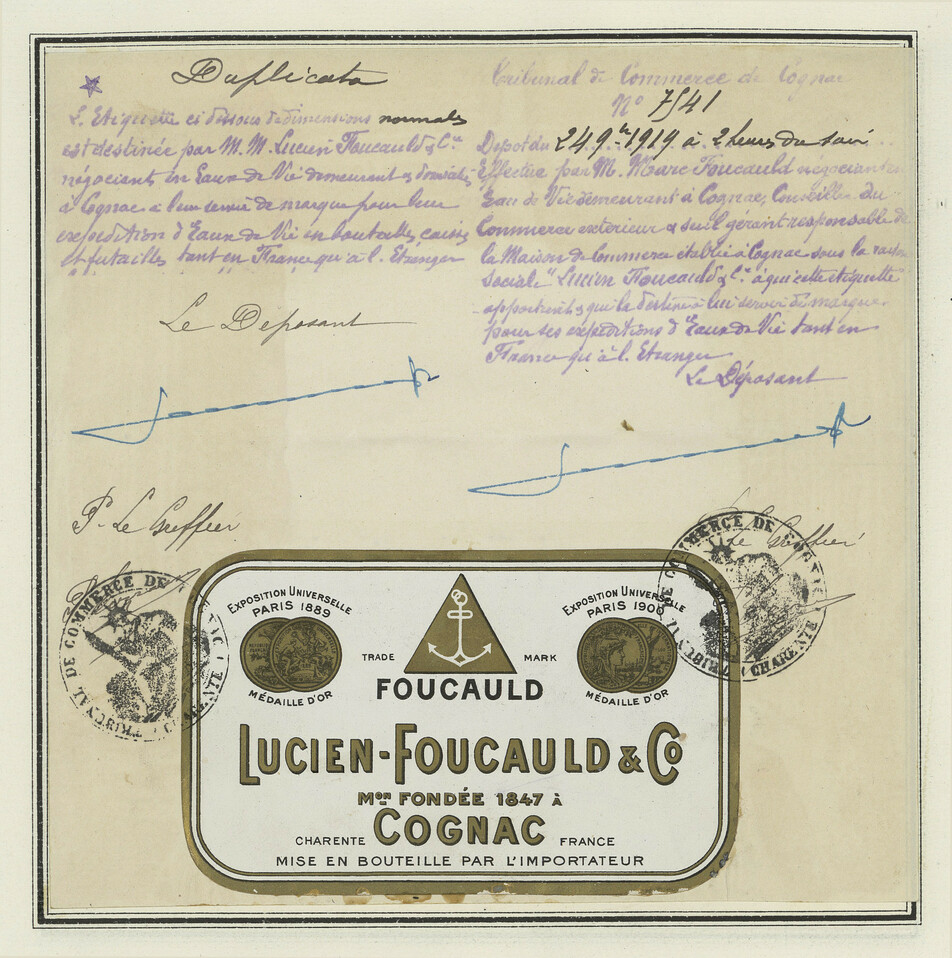 Duplicata
L'Etiquette ci dessous de dimensions normales
est destinée par M. M. Lucien Foucauld & Cie
négociants en Eaux de Vie demeurant & domiciliés
à Cognac à leur servir de marque pour leur
expédition d'Eaux de Vie en bouteilles, caisses
et futailles tant en France qu'à l'Etranger
Le Déposant
P. Le Greffier
Tribunal de Commerce de Cognac
No 7541
Depot du 24 9bre 1919 à 2 heures du soir
Effectué par M. Marc Foucauld négociant en
Eau de Vie demeurant à Cognac, Conseiller du
Commerce extérieur & seul gérant responsable de
la Maison de Commerce établie à Cognac sous la raison
sociale "Lucien Foucauld & Cie" à qui cette étiquette
appartient & qui la destine à lui servir de marque
pour ses expéditions d'Eaux de Vie tant en
France qu'à l'Etranger
Le Déposant
Le Greffier
TRIBUNAL DE COMMERCE DE COGNAC (CHARENTE)
TRIBUNAL DE COMMERCE DE COGNAC (CHARENTE)
EXPOSITION UNIVERSELLE
PARIS 1889
MÉDAILLE D'OR
EXPOSITION UNIVERSELLE
PARIS 1900
MÉDAILLE D'OR
TRADE MARK
FOUCAULD
LUCIEN-FOUCAULD & Co
Mon FONDÉE 1847 À
CHARENTE COGNAC FRANCE
MISE EN BOUTEILLE PAR L'IMPORTATEUR